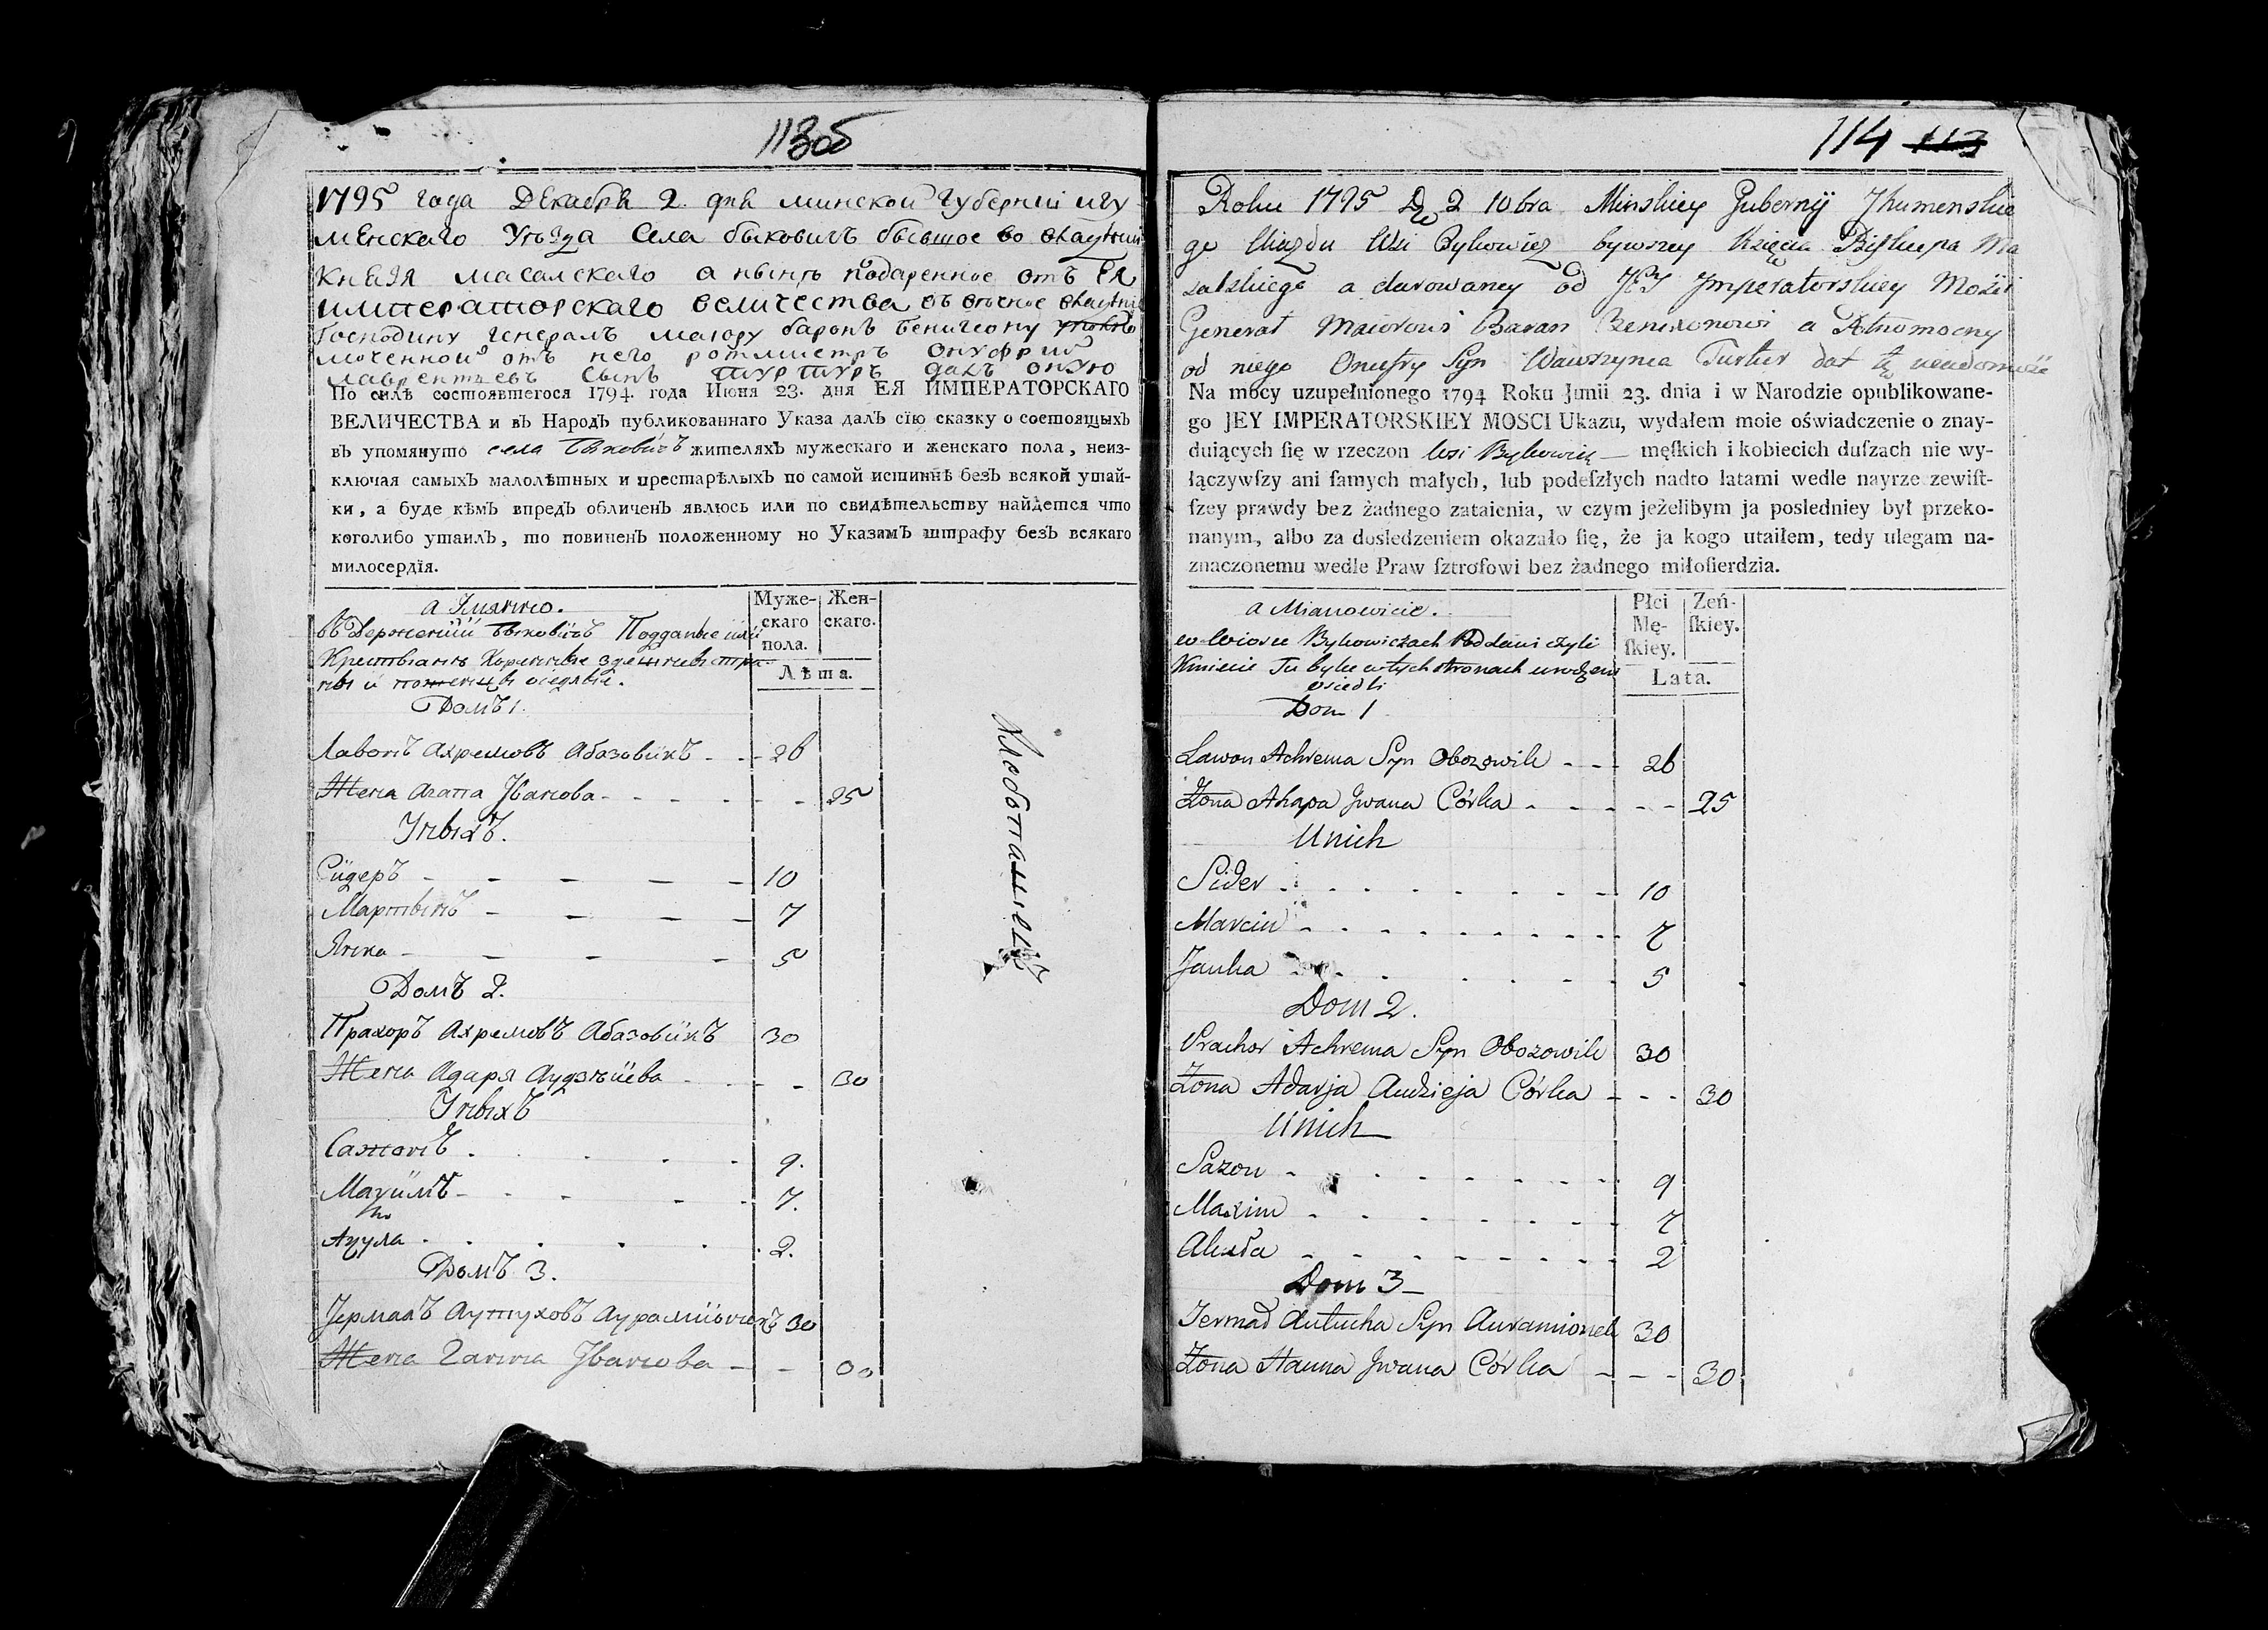 113об
1795 года Декабря 2. дня минской губернии игу
менскаго Уѣзда Села быковичъ бывшое во владѣнии
князя масалскаго а нынѣ подаренное отъ Ея
императорскаго величества въ вѣчное владѣние
Господину генералъ маіору баронъ бенигсону уполно
моченной отъ него ротмистръ онуфрий
лаврентьевъ сынъ туртуръ далъ оную
По силѣ состоявшегося 1794. года Июня 23. дня ЕЯ ИМПЕРАТОРСКАГО
ВЕЛИЧЕСТВА и въ Народъ публикованнаго Указа далъ сїю сказку о состоящыхъ
въ упомянуто села Быковичъ жителяхъ мужескаго и женскаго пола, неиз-
ключая самыхъ малолѣтных и престарѣлыхъ по самой истиннѣ безъ всякой утай-
ки, а буде кѣмъ впредъ обличенъ явлюсь или по свидѣтельству найдется что
коголибо утаилъ, то повиненъ положенному по Указамъ штрафу безъ всякаго
милосердїя.
а Імянно.
въ Держеніи Быковичъ Подданые или
Крестьянѣ Коренные здешнеи стра-
ны и оседлые.
Муже-
скаго
пола.
Жен-
скаго.
Лѣта.
Домъ 1.
Лавонъ Ахремовъ Абазовикъ - - 26
Жена Агапа Іванова - - - - - - 25
Уныхъ.
Сидеръ - - - - - 10
Мартынъ - - - - 7
Янка - - - - 5
Домъ 2.
Прахоръ Ахремовъ Абазовикъ 30
Жена Адаря Аудзѣева - - - - 30
Уныхъ
Сазонъ . . . . . 9.
Махимъ - - - - - 7.
Ахула . . . . . 2.
Домъ 3.
Јермалъ Аутуховъ Аурамионокъ 30
Жена Ганна Іванова - - 30
Хлеботанецъ
114 113
Roku 1795 Dn 2 10bra Minskiey Gubernÿ Jhumenskie
go Uiazdu Wsi Bykowicz bywszey Xsięcia Biskupa Ma
salskiego a darowaney od JEJ Jmperatorskiey Mości
Generał Maiorowi Baron Benixonowi a Pełnomocny
od niego Onufry Syn Wawrzynca Turtur dał tę wiadomość
Na mocy uzupełnionego 1794 Roku Junii 23. dnia i w Narodzie opublikowane-
go JEY IMPERATORSKIEY MOSCI Ukazu, wydałem moie oświadczenie o znay-
duiących ſię w rzeczon Wsi Bykowicz — męſkich i kobiecich duſzach nie wy-
łączywſzy ani ſamych małych, lub podeſzłych nadto latami wedle nayrze zewiſt-
ſzey prawdy bez żadnego zataienia, w czym jeżelibym ja posledniey był przeko-
nanym, albo za dosledzeniem okazało ſię, że ja kogo utaiłem, tedy ulegam na-
znaczonemu wedle Praw ſztrofowi bez żadnego miłoſierdzia.
a Mianowicie.
w Wiosce Bykowiczach Poddani czyli
Kmiecie Tu bylce w tych stronach urodzeni
osiedli
Płci
Mę-
ſkiey.
Zeń-
ſkiey.
Lata.
Dom 1
Lawon Achrema Syn Obozowik - - - 26
Żona Ahapa Jwana Córka - - - - - 25
Unich
Sider - - - - - - - - 10
Marcin - - - - - - - - 7
Janka - - - - - - 5
Dom 2.
Prachor Achrema Syn Obozowik 30
Żona Adarja Audzieja Córka - - - 30
Unich
Sazon - - - - - - - - 9
Maxim - - - - - - - 7
Akuła - - - - - - - - 2
Dom 3 -
Jermał Autucha Syn Auramionek 30
Żona Hanna Jwana Córka - - - 30